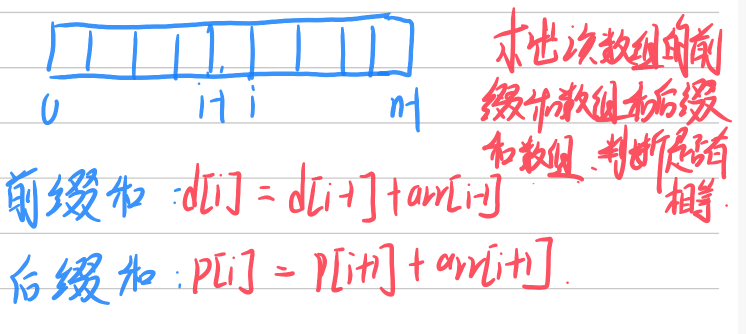 0 i-1 i n-1
求出次数组的前
缀和数组和后缀
和数组、判断是否有
相等.
前缀和:d[i] = d[i-1]+arr[i-1]
后缀和:p[i] = p[i+1]+arr[i+1].